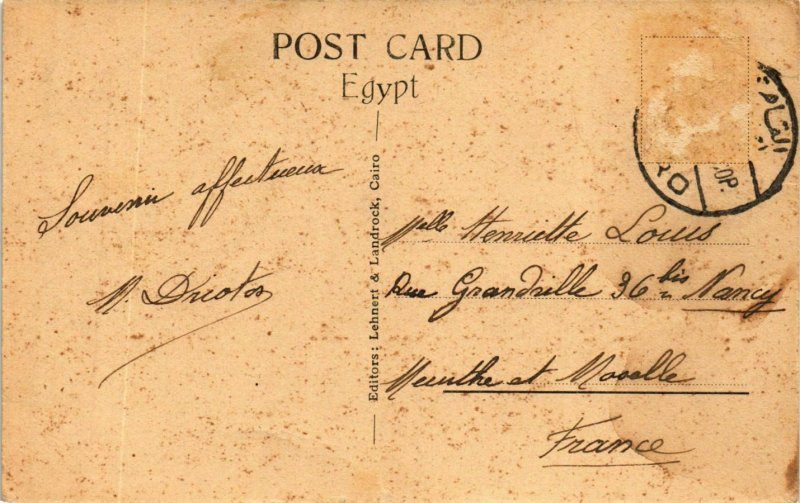 POST CARD
Egypt
القاهرة
RO
0P.
Souvenir affectueux
M. Drioton
Editors: Lehnert & Landrock, Cairo
Melle Henriette Louis
Rue Grandville 36 bis Nancy
Meurthe et Moselle
France